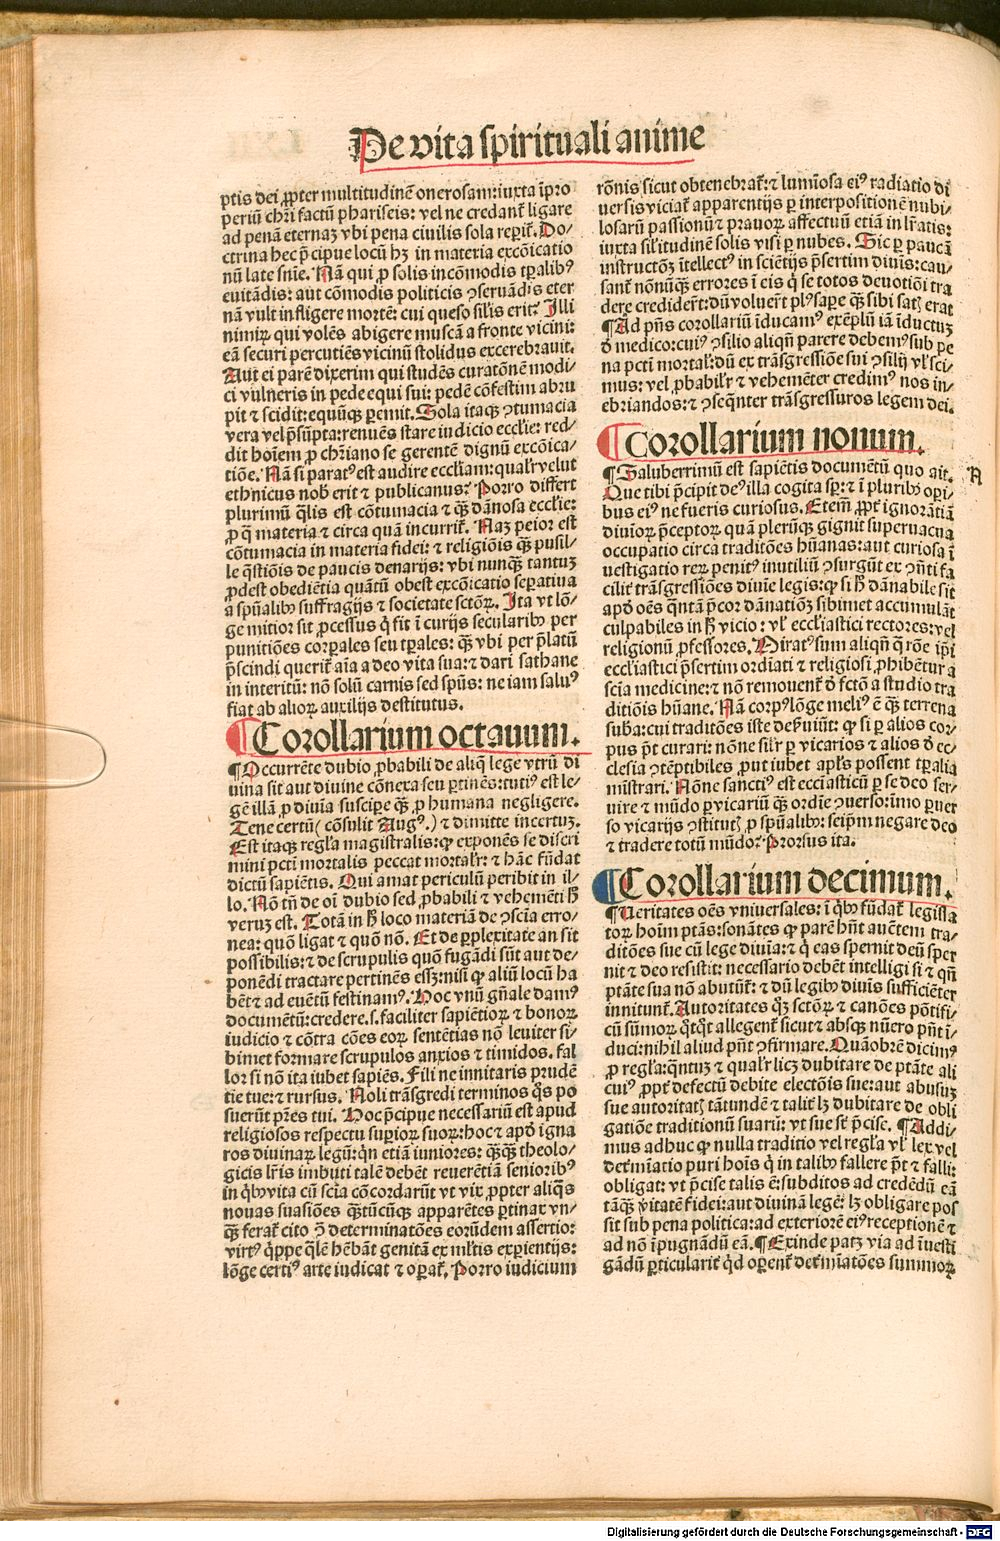 De vita spirituali anime
ptis dei ꝓpter multitudinē onerosam: iuxta īpro
periū chri factū phariseis: vel ne credant̄ ligare
ad penā eternaꝫ vbi pena ciuilis sola reperit̄. Do⸗
ctrina hec p̄cipue locū hꝫ in materia excōicatio
nū late sn̄ie. Nā qui ꝓ solis incōmodis tꝑalibꝰ
euitādis: aut cōmodis politicis ꝯseruādis eter
nā vult infligere mortē: cui queso silis erit? Illi
nimiꝝ qui volēs abigere muscā a fronte vicini:
eā securi percutiēs vicinū stolidus excerebrauit.
Aut ei parē dixerim qui studēs curatōnē modi⸗
ci vulneris in pede equi sui: pedē cōfestim abru
pit ⁊ scidit: equūqꝫ ꝑemit. Sola itaqꝫ ꝯtumacia
vera vel p̄sūpta: renuēs stare iudicio ecclie: red⸗
dit hoīem ꝓ chriano se gerentē dignū excōica⸗
tiōe. Nā si paratꝰ est audire eccliam: qualr̄ velut
ethnicus nob̄ erit ⁊ publicanus? Porro differt
plurimū q̄lis est cōtumacia ⁊ qꝫ dānosa ecclie:
ꝓ q̄ materia ⁊ circa quā incurrit̄. Naꝫ peior est
cōtumacia in materia fidei: ⁊ religiōis qꝫ pusil⸗
le q̄stiōis de paucis denarijs: vbi nunqꝫ tantuꝫ
ꝓdest obediētia quātū obest excōicatio seꝑatiua
a spūalibꝰ suffragijs ⁊ societate sctōꝝ. Ita vt lō⸗
ge mitior sit ꝓcessus q̇ fit ī curijs secularibꝰ per
punitiōes corꝑales seu tꝑales: qꝫ vbi per p̄latū
p̄scindi querit̄ aīa a deo vita sua: ⁊ dari sathane
in interitū: nō solū carnis sed spūs: ne iam saluꝰ
fiat ab alioꝝ auxilijs destitutus.
Corollarium octauum.
¶ Occurrēte dubio ꝓbabili de aliq̄ lege vtrū di
uina sit aut diuine cōnexa seu ꝑtinēs: tutiꝰ est le⸗
gē illā ꝓ diuīa suscipe qꝫ ꝓ humana negligere.
Tene certū (cōsulit Augꝰ.) ⁊ dimitte incertuꝫ.
Est itaqꝫ regl̄a magistralis: ꝙ exponēs se discri
mini pcti mortalis peccat mortalr̄: ⁊ hāc fūdat
dictū sapiētis. Qui amat periculū peribit in il⸗
lo. Nō tn̄ de oī dubio sed ꝓbabili ⁊ vehemēti h̄
veruꝫ est. Totā in h̄ loco materiā de ꝯscia erro⸗
nea: quō ligat ⁊ quō nō. Et de ꝑplexitate an sit
possibilis: ⁊ de scrupulis quō fugādi sūt aut de⸗
ponēdi tractare pertinēs essꝫ: nisi ꝙ aliū locū ha
bēt ⁊ ad euētū festinamꝰ. Hoc vnū gn̄ale damꝰ
documētū: credere .s. faciliter sapiētioꝝ ⁊ bonoꝝ
iudicio ⁊ cōtra cōes eoꝝ sentētias nō leuiter si⸗
bimet formare scrupulos anxios ⁊ timidos. fal
lor si nō ita iubet sapiēs. Fili ne innitaris prudē
tie tue: ⁊ rursus. Noli trāsgredi terminos q̄s po
suerūt pr̄es tui. Hoc p̄cipue necessariū est apud
religiosos respectu supioꝝ suoꝝ: hoc ⁊ apd̄ igna
ros diuinaꝝ legū: qn̄ etiā iuniores: qꝫqꝫ theolo⸗
gicis lr̄is imbuti talē debēt reuerētiā senioribꝰ
in q̇bꝰ vita cū scia cōcordarūt vt vix ꝓpter aliq̄s
nouas suasiōes qꝫtūcūqꝫ apparētes ꝑtinax vn⸗
qꝫ ferat̄ cito ꝯ̄ determinatōes eorūdem assertio:
virtꝰ q̇ppe q̄lē hēbāt genitā ex ml̄tis exꝑientijs:
lōge certiꝰ arte iudicat ⁊ oꝑat̄. Porro iudicium
rōnis sicut obtenebrat̄: ⁊ lumīosa eiꝰ radiatio di
uersis viciat̄ apparentijs ꝑ interpositionē nubi⸗
losarū passionū ⁊ prauoꝝ affectuū etiā in lr̄atis:
iuxta sil̄itudinē solis visi ꝑ nubes. Sic ꝑ paucā
instructōꝫ ītellectꝰ in sciētijs p̄sertim diuīs: cau⸗
sant̄ nōnūqꝫ errores ī eis q̇ se totos deuotiōi tra
dere crediderūt: dū voluerūt plꝰ sape qꝫ sibi satꝭ erat
¶ Ad pn̄s corollariū īducamꝰ exēplū iā īductuꝫ
d̄ medico: cuiꝰ ꝯsilio aliqn̄ parere debemꝰ sub pe
na pcti mortal̄: dū ex trāsgressiōe sui ꝯsilij vl̄ sci⸗
mus: vel ꝓbabilr̄ ⁊ vehemēter credimꝰ nos in⸗
ebriandos: ⁊ ꝯseq̄nter trāsgressuros legem dei.
Corollarium nonum.
¶ Saluberrimū est sapiētis documētū quo ait. A
Que tibi p̄cipit deꝰ illa cogita sp: ⁊ ī pluribꝰ opi
bus eiꝰ ne fueris curiosus. Etem̄ ꝓpt̄ ignorātiā
diuīoꝝ p̄ceptoꝝ quā plerūqꝫ gignit superuacua
occupatio circa traditōes hūanas: aut curiosa ī
uestigatio reꝝ penitꝰ inutiliū ꝯsurgūt ex ꝯn̄ti fa
cilit̄ trāsgressiōes diuīe legis: ꝙ si h̄ dānabile sit
apd̄ oēs q̄ntā p̄cor dānatiōꝫ sibimet accumulāt
culpabiles in h̄ vicio: vl̄ ecclīastici rectores: vel
religionū ꝓfessores. Miratꝰ sum aliqn̄ q̄ rōe ip̄i
ecclīastici p̄sertim ordīati ⁊ religiosi ꝓhibētur a
scīa medicine: ⁊ nō remouent̄ d̄ fctō a studio tra
ditiōis hūane. Nā corpꝰ lōge meliꝰ ē qꝫ terrena
suba: cui traditōes iste def̄uiūt: ꝙ si ꝑ alios cor⸗
pus p̄t curari: nōne sil̄r ꝑ vicarios ⁊ alios d̄ ec⸗
clesia ꝯtēptibiles ꝓut iubet apl̄s possent tꝑalia
mīstrari. Nōne sanctiꝰ est ecclīasticū ꝑ se deo ser⸗
uire ⁊ mūdo ꝑ vicariū qꝫ ordīe ꝯuerso: īmo ꝑuer
so vicarijs ꝯstitutꝭ ꝓ spūalibꝰ: seipm̄ negare deo
⁊ tradere totū mūdo? Prorsus ita.
Corollarium decimum.
¶ Veritates oēs vniuersales: ī q̇bꝰ fūdat̄ legisla
toꝝ hoīm ptās: sonātes ꝙ parē hn̄t auctem tra⸗
ditōes sue cū lege diuīa: ⁊ q̇ eas spernit deū sper
nit ⁊ deo resistit: necessario debēt intelligi si ⁊ qn̄
ptāte sua nō abutūt̄: ⁊ dū legibꝰ diuīs sufficiēter
innitunt̄. Autoritates qꝫ sctōꝝ ⁊ canōes pōtifi⸗
cū sūmoꝝ q̇tq̇t allegent̄ sicut ⁊ absqꝫ nūero pn̄t ī⸗
duci: nihil aliud pn̄t ꝯfirmare. Quāobrē dicimꝰ
ꝓ regl̄a: q̄ntuꝫ ⁊ qualr̄ licꝫ dubitare de ptāte ali
cuiꝰ ꝓpt̄ defectū debite electōis sue: aut abusuꝫ
sue autoritatꝭ tātundē ⁊ talit̄ lꝫ dubitare de obli
gatiōe traditionū suarū: vt sue st̄ p̄cise. ¶ Addi⸗
mus adhuc ꝙ nulla traditio vel regl̄a vl̄ lex vel
det̄mīatio puri hoīs q̇ in talibꝰ fallere p̄t ⁊ falli:
obligat: vt p̄cise talis ē: subditos ad credēdū eā
tāqꝫ v̄itatē fidei: aut diuinā legē: lꝫ obligare pos
sit sub pena politica: ad exteriorē eiꝰ receptionē ⁊
ad nō īpugnādū eā. ¶ Exinde patꝫ via ad īuesti
gādū ꝑticularit̄ q̇d oꝑent̄ det̄mīatōes summoꝝ
Digitalisierung gefördert durch die Deutsche Forschungsgemeinschaft - DFG